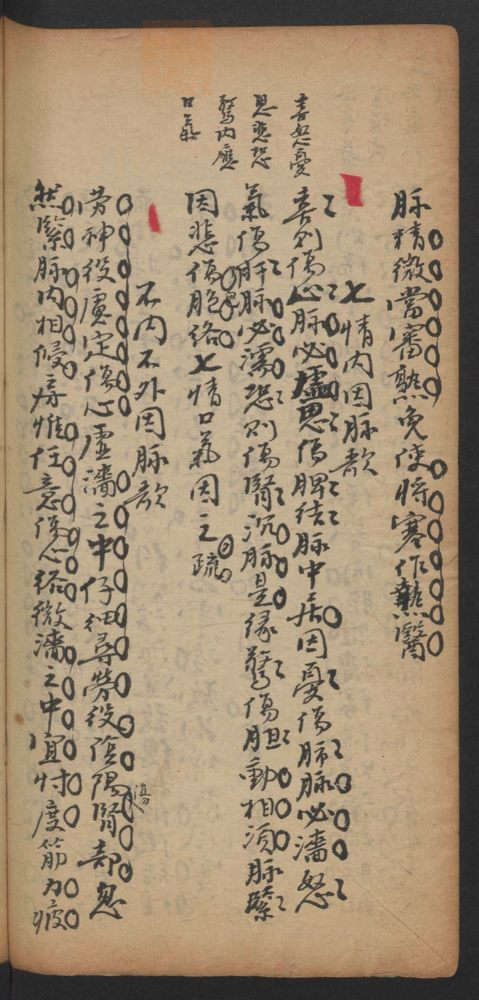 脉精微當審熟免使將寒作熱醫
七情内因脉歌
喜怒憂
思悲恐
驚内應
口氣
喜則傷心脉必虛思傷脾結脉中居因憂傷肺脉必濇怒
氣傷肝脉必濡恐則傷腎沉脉是緣驚傷胆動相須脉緊
因悲傷胞絡七情口氣因之疏
不内不外因脉歌
劳神役慮定傷心虛濇之中仔細尋勞役陰陽傷腎部忽
然緊脉内相侵房惟任意傷心絡微濇之中宜忖度筋力疲